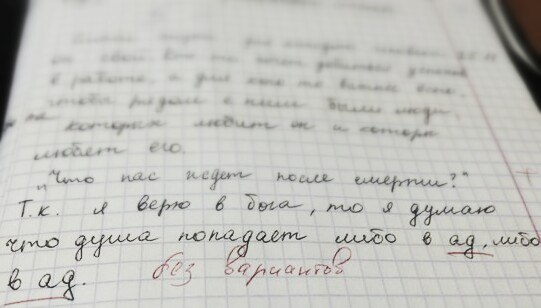 в работе, а для кого то важнее всего
чтобы рядом с ним были люди,
которых любит он и которые
любят его.
"Что нас ждет после смерти?"
Т.к. я верю в бога, то я думаю
что душа попадает либо в ад, либо
в ад. без вариантов